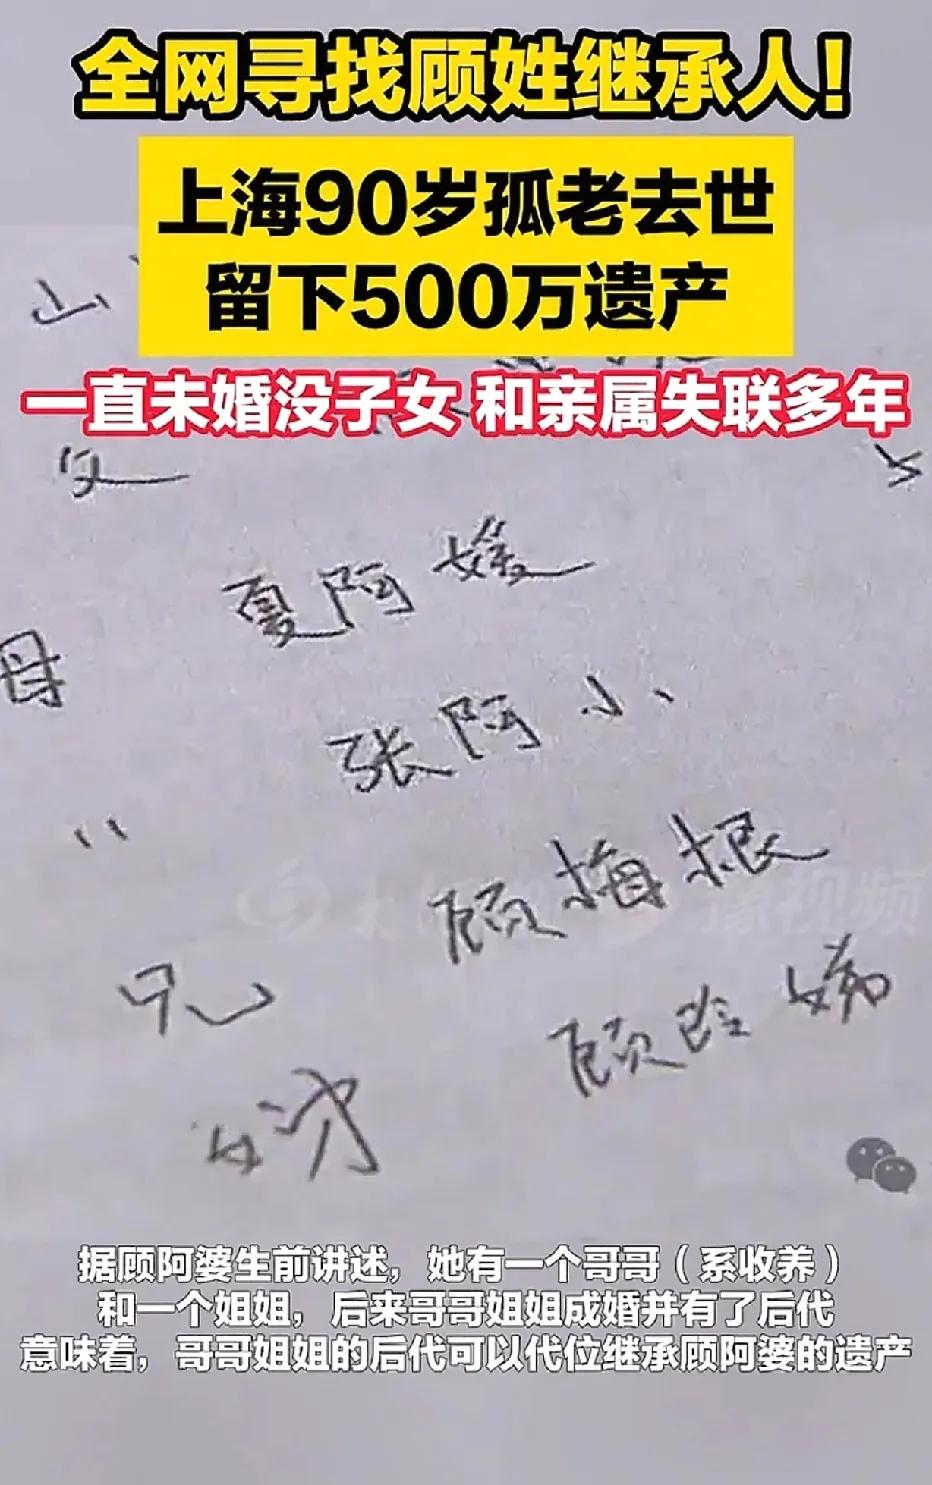 全网寻找顾姓继承人！
上海90岁孤老去世
留下500万遗产
一直未婚没子女 和亲属失联多年
父
母 夏阿媛
" 张阿小
兄 顾梅根
顾玲娣
豫视频
据顾阿婆生前讲述，她有一个哥哥（系收养）
和一个姐姐，后来哥哥姐姐成婚并有了后代
意味着，哥哥姐姐的后代可以代位继承顾阿婆的遗产